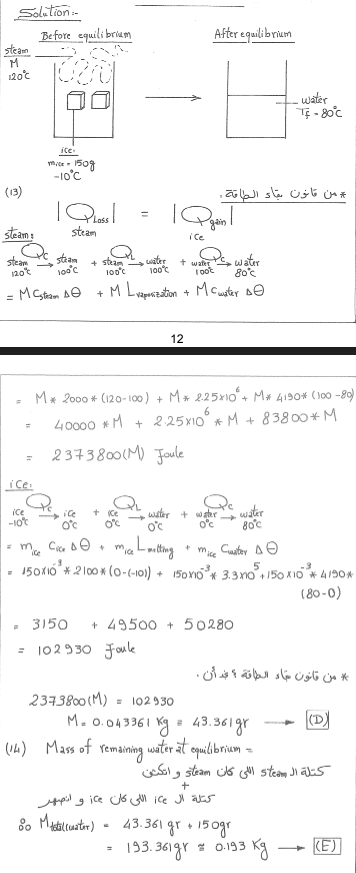 Solution:-
Before equilibrium After equilibrium
steam
M
120°C
water
Tf = 80°C
ice:
mice = 150g
-10°C
(13) * من قانون بقاء الطاقة.
|QLoss| = |Qgain|
steam ice
steam:
steam 120°C →Qc steam 100°C + steam 100°C →QL water 100°C + water 100°C →Qc water 80°C
= M Csteam Δθ + M Lvaporization + M Cwater Δθ
12
= M * 2000 * (120-100) + M * 2.25x10^6 + M * 4190 * (100-80)
= 40000 * M + 2.25x10^6 * M + 83800 * M
= 2373800(M) Joule
ice:
ice -10°C →Qc ice 0°C + ice 0°C →QL water 0°C + water 0°C →Qc water 80°C
= mice Cice Δθ + mice Lmelting + mice Cwater Δθ
= 150x10^-3 * 2100 * (0-(-10)) + 150x10^-3 * 3.3x10^5 + 150x10^-3 * 4190 *
(80-0)
= 3150 + 49500 + 50280
= 102930 Joule
* من قانون بقاء الطاقة نجد أن.
2373800(M) = 102930
M = 0.043361 Kg = 43.361gr → (D)
(14) Mass of remaining water at equilibrium =
كتلة الـ steam اللي كان steam و اتكثف
+
كتلة الـ ice اللي كان ice و انصهر
∴ Mtotal(water) = 43.361 gr + 150gr
= 193.361gr ≅ 0.193 Kg → (E)